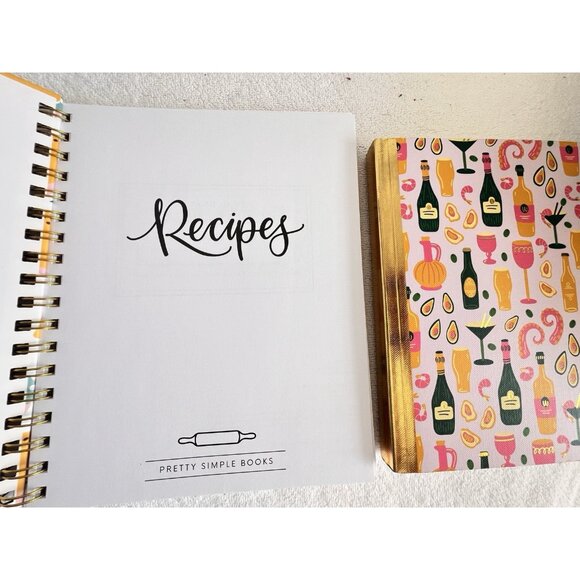 Recipes
PRETTY SIMPLE BOOKS